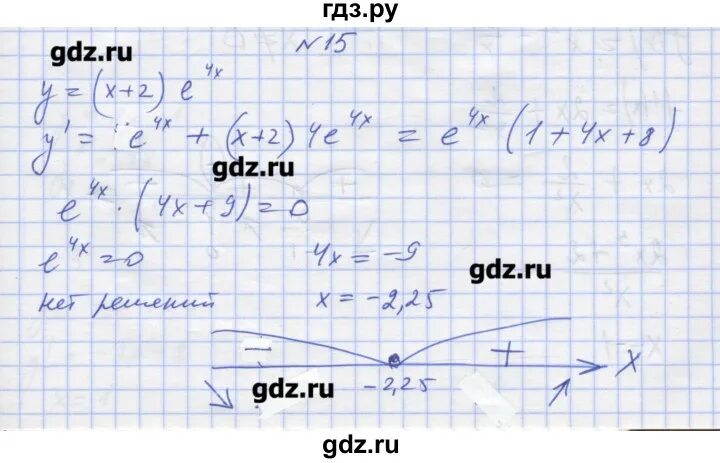 гдз.ру
gdz.ru
№15
y = (x+2) e^4x
y' = e^4x + (x+2) 4e^4x = e^4x (1+4x+8)
gdz.ru
e^4x · (4x+9) = 0
e^4x = 0 4x = -9
gdz.ru
нет решений x = -2,25
− + x
gdz.ru
-2,25
gdz.ru